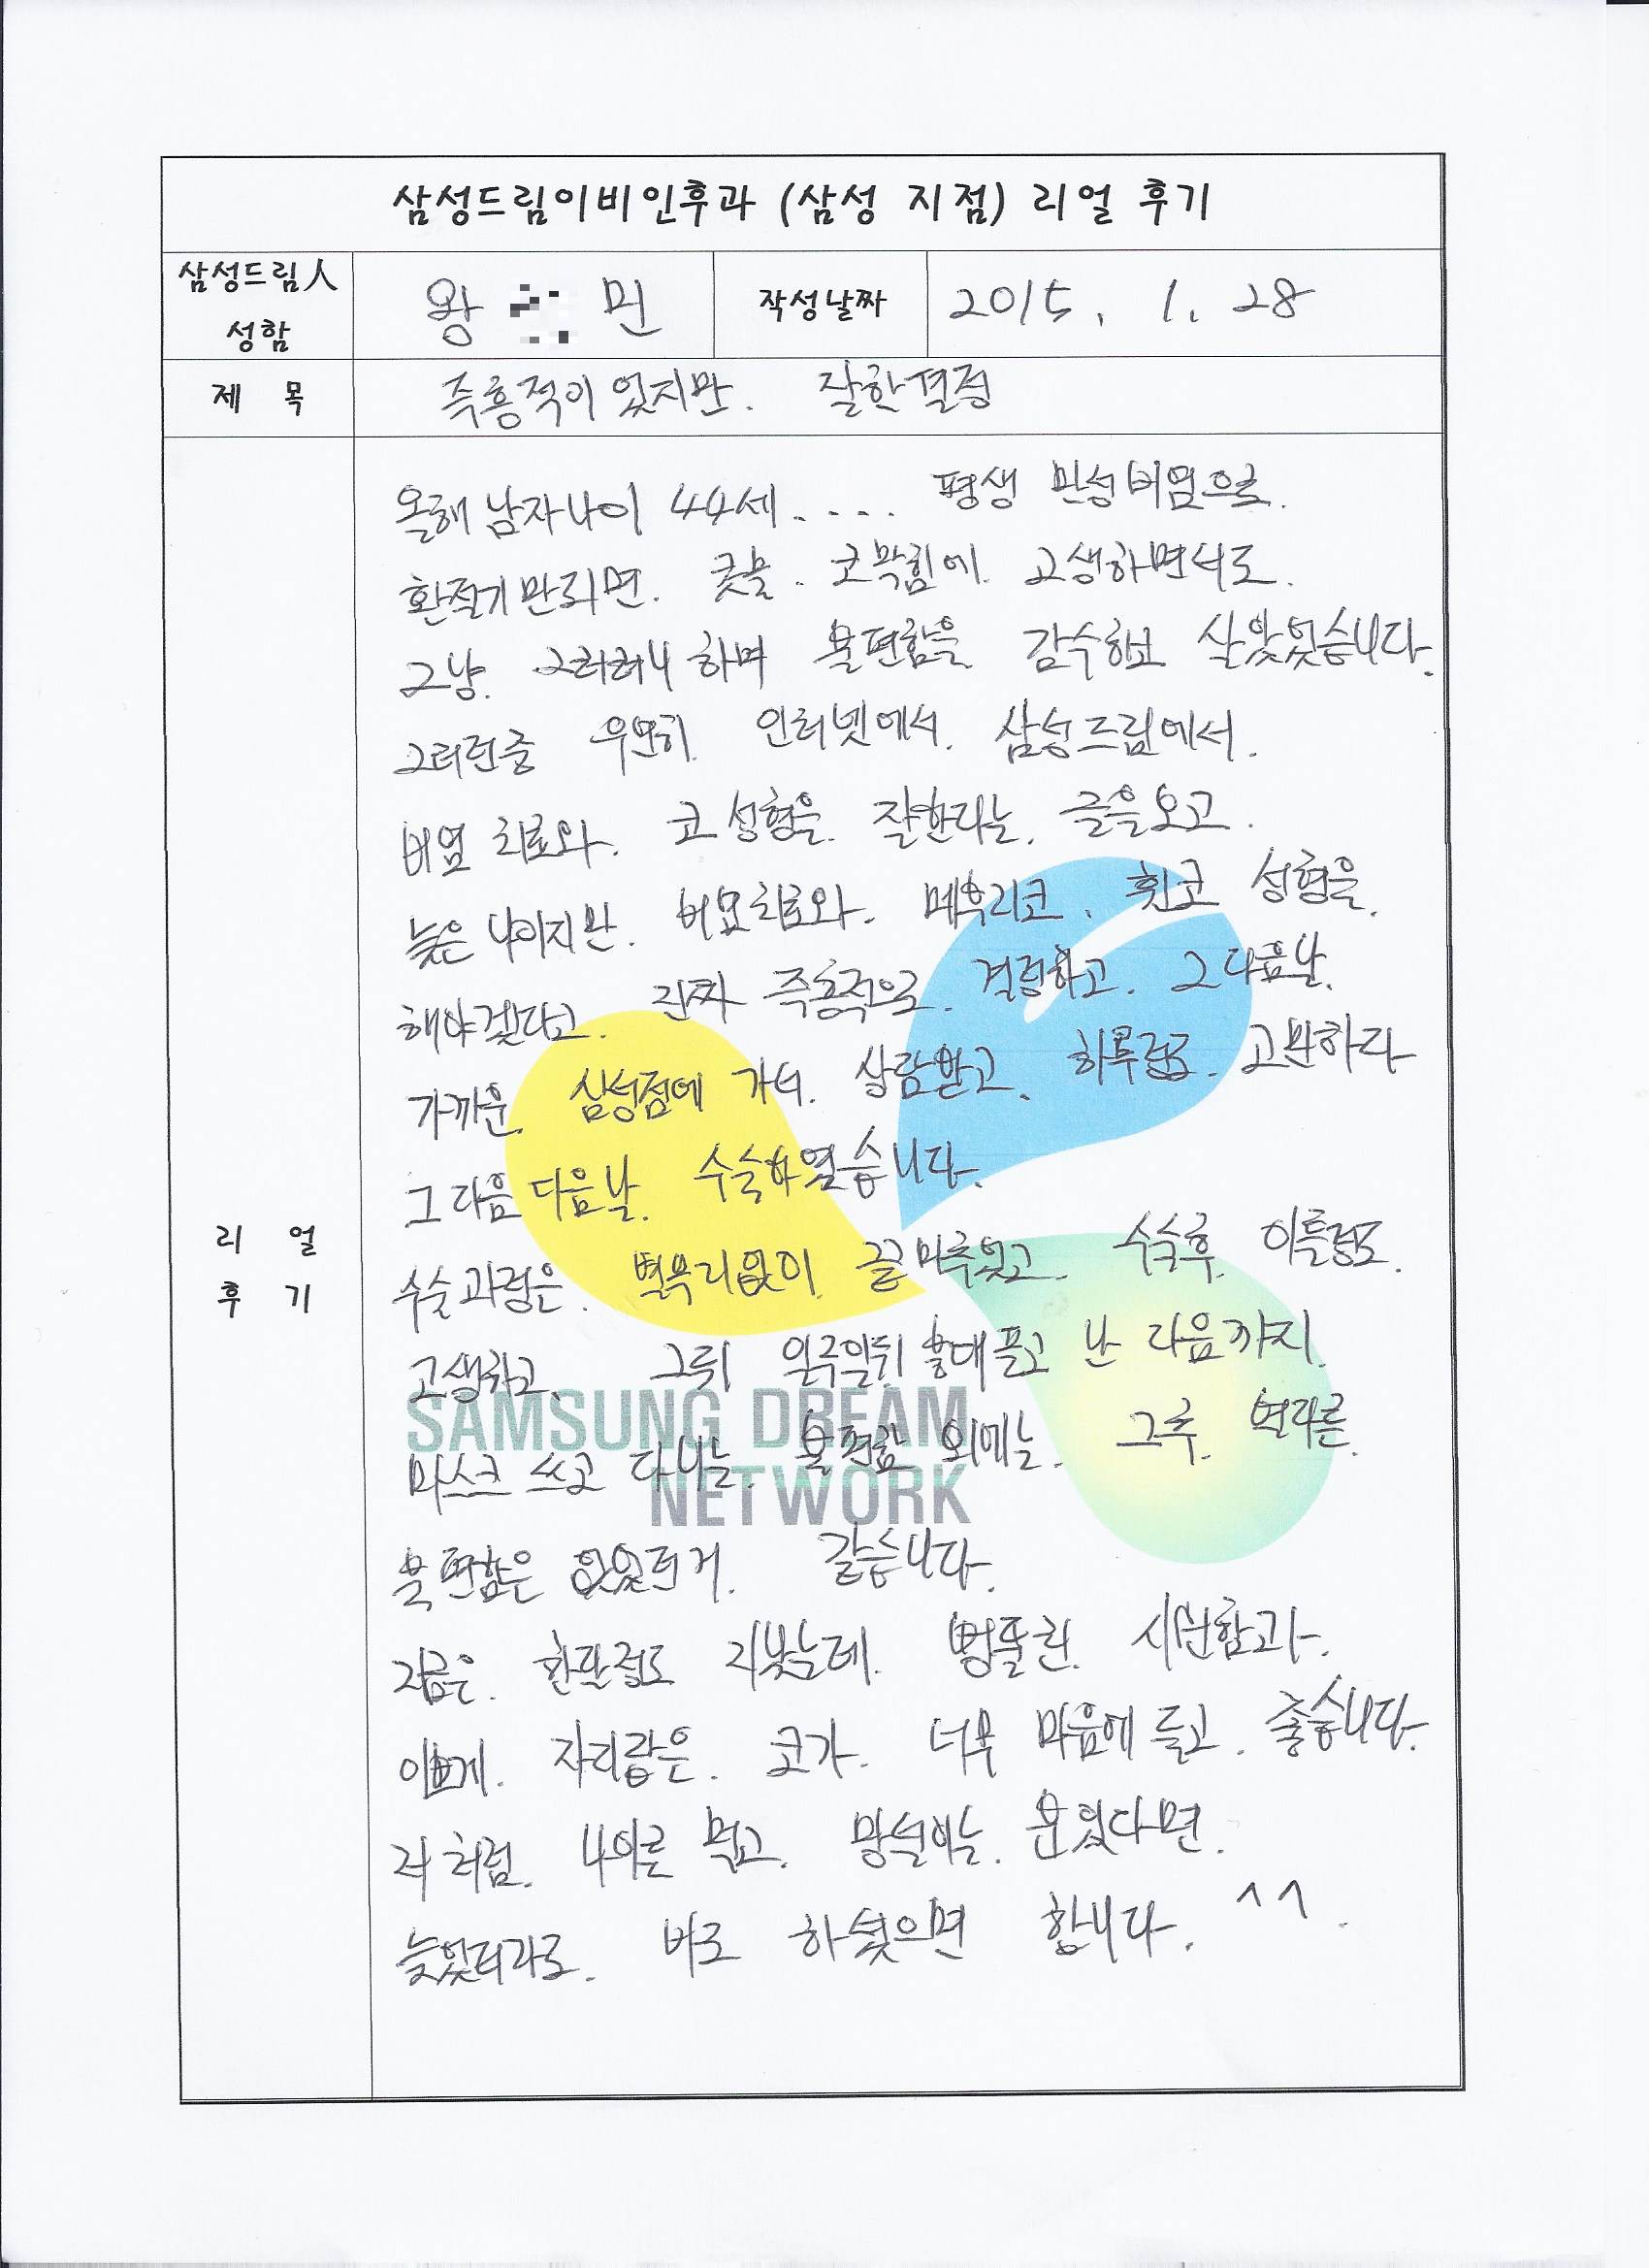 삼성드림이비인후과 (삼성 지점) 리얼 후기
삼성드림人 성함 왕 민 작성날짜 2015. 1. 28
제 목 즉흥적이었지만. 잘한결정
리 얼 후 기
올해 남자나이 44세.... 평생 만성비염으로.
환절기만되면. 콧물. 코막힘에. 고생하면서도.
그냥. 그러려니 하며 불편함을 감수하고 살았었습니다.
그러던중 우연히 인터넷에서. 삼성드림에서.
비염 치료와. 코 성형을. 잘한다는. 글을보고.
늦은 나이지만. 비염치료와. 매부리코. 휜코 성형을.
해야겠다고. 진짜 즉흥적으로. 결정하고. 그 다음날.
가까운. 삼성점에 가서. 상담받고. 하루정도. 고민하다
그 다음 다음날. 수술하였습니다.
수술과정은. 별무리없이. 끝마추었고. 수술후. 이틀정도.
고생하고. 그뒤 일주일뒤 붕대풀고 난 다음까지.
마스크 쓰고 다니는. 불편함 외에는. 그후. 별다른.
불편함은 없었던거. 같습니다.
지금은. 한달정도 지났는데. 뻥뚫린. 시원함과.
이쁘게. 자리잡은. 코가. 너무 마음에 들고. 좋습니다.
저처럼. 나이를 먹고. 망설이는. 분있다면.
늦었더라도. 바로 하셨으면 합니다. ^^.
SAMSUNG DREAM
NETWORK